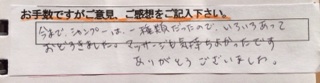 お手数ですがご意見、ご感想をご記入下さい。
今まで、シャンプーは、一種類だったので、いろいろあって
おどろきました。マッサージも気持ちよかったです
ありがとうございました。